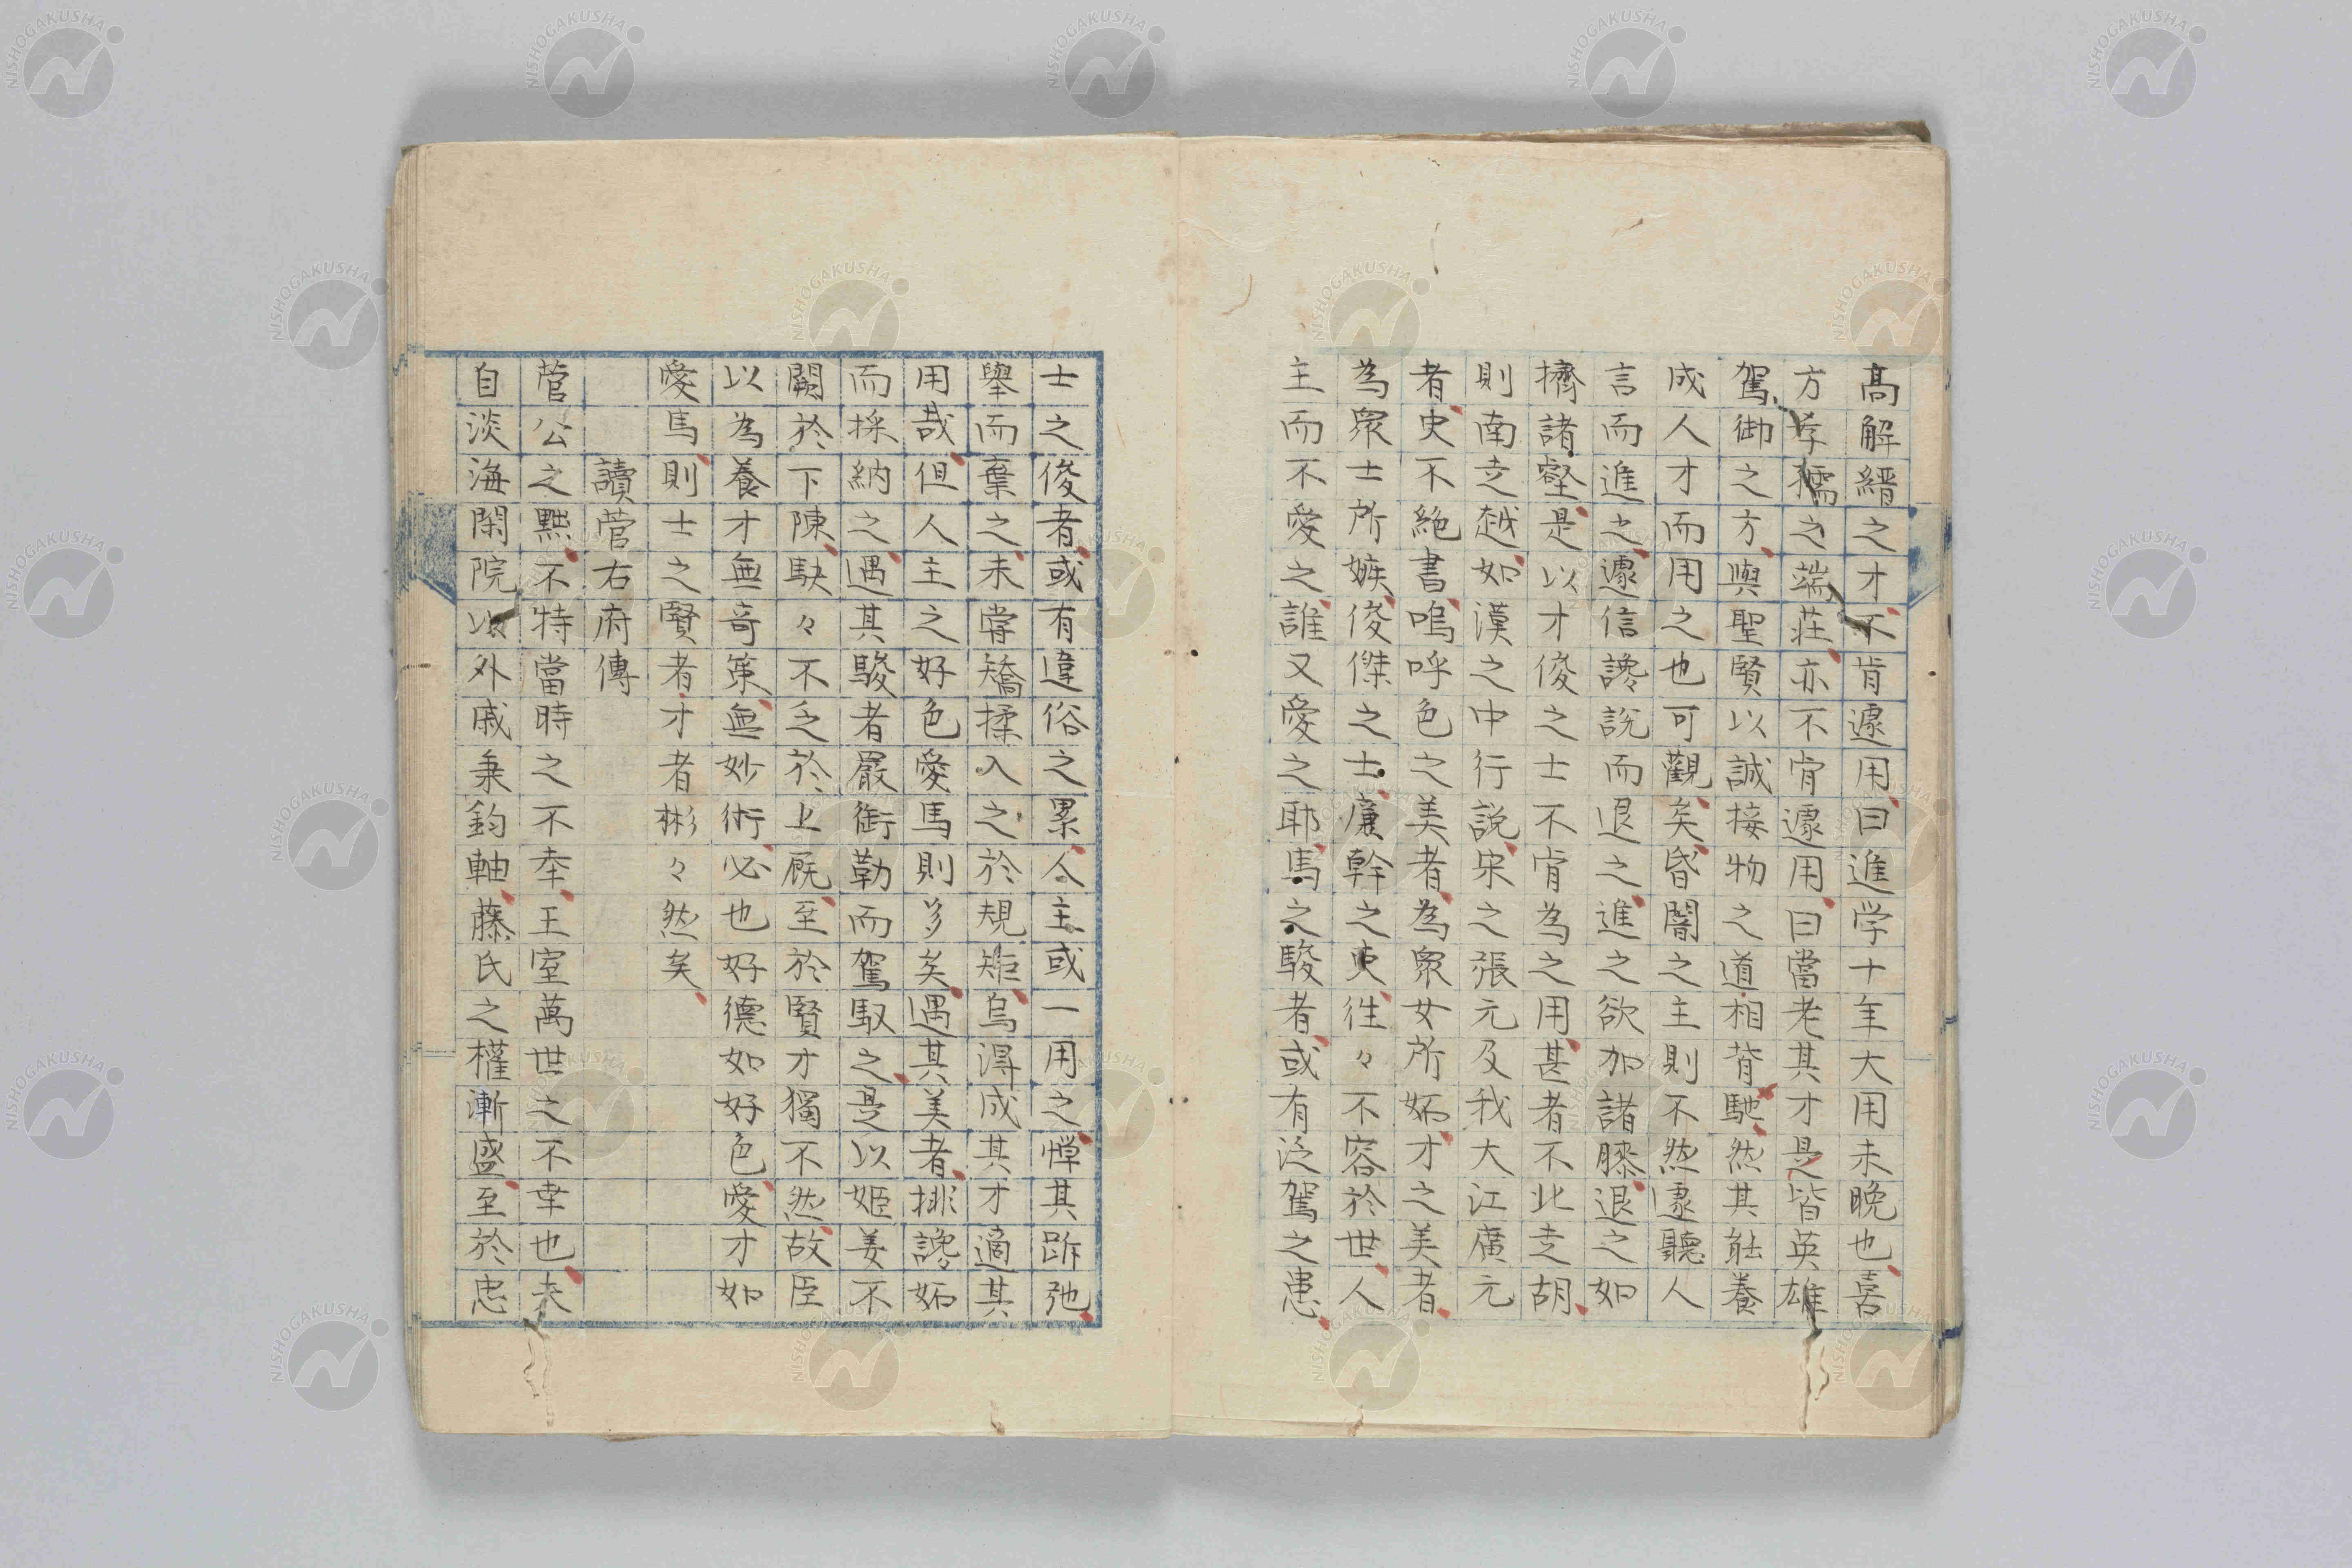 高解縉之才不肯遽用曰進学十年大用未晩也喜
方孝孺之端荘亦不肯遽用曰當老其才是皆英雄
駕御之方與聖賢以誠接物之道相背馳然其能養
成人才而用之也可觀矣昏闇之主則不然遽聽人
言而進之遽信讒説而退之進之欲加諸膝退之如
擠諸壑是以才俊之士不肯為之用甚者不北走胡
則南走越如漢之中行説宋之張元及我大江廣元
者史不絶書嗚呼色之美者為衆女所妬才之美者
為衆士所嫉俊傑之士廉幹之吏往々不容於世人
主而不愛之誰又愛之耶馬之駿者或有泛駕之患
士之俊者或有違俗之累人主或一用之憚其跅弛
舉而棄之未嘗矯揉入之於規矩烏得成其才適其
用哉但人主之好色愛馬則多矣遇其美者排讒妬
而採納之遇其駿者嚴銜勒而駕馭之是以姫姜不
闕於下陳駃々不乏於上厩至於賢才獨不然故臣
以為養才無奇策無妙術必也好德如好色愛才如
愛馬則士之賢者才者彬々然矣
讀菅右府傳
菅公之黜不特當時之不幸王室萬世之不幸也夫
自淡海閑院以外戚秉鈞軸藤氏之權漸盛至於忠
NISHOGAKUSHA